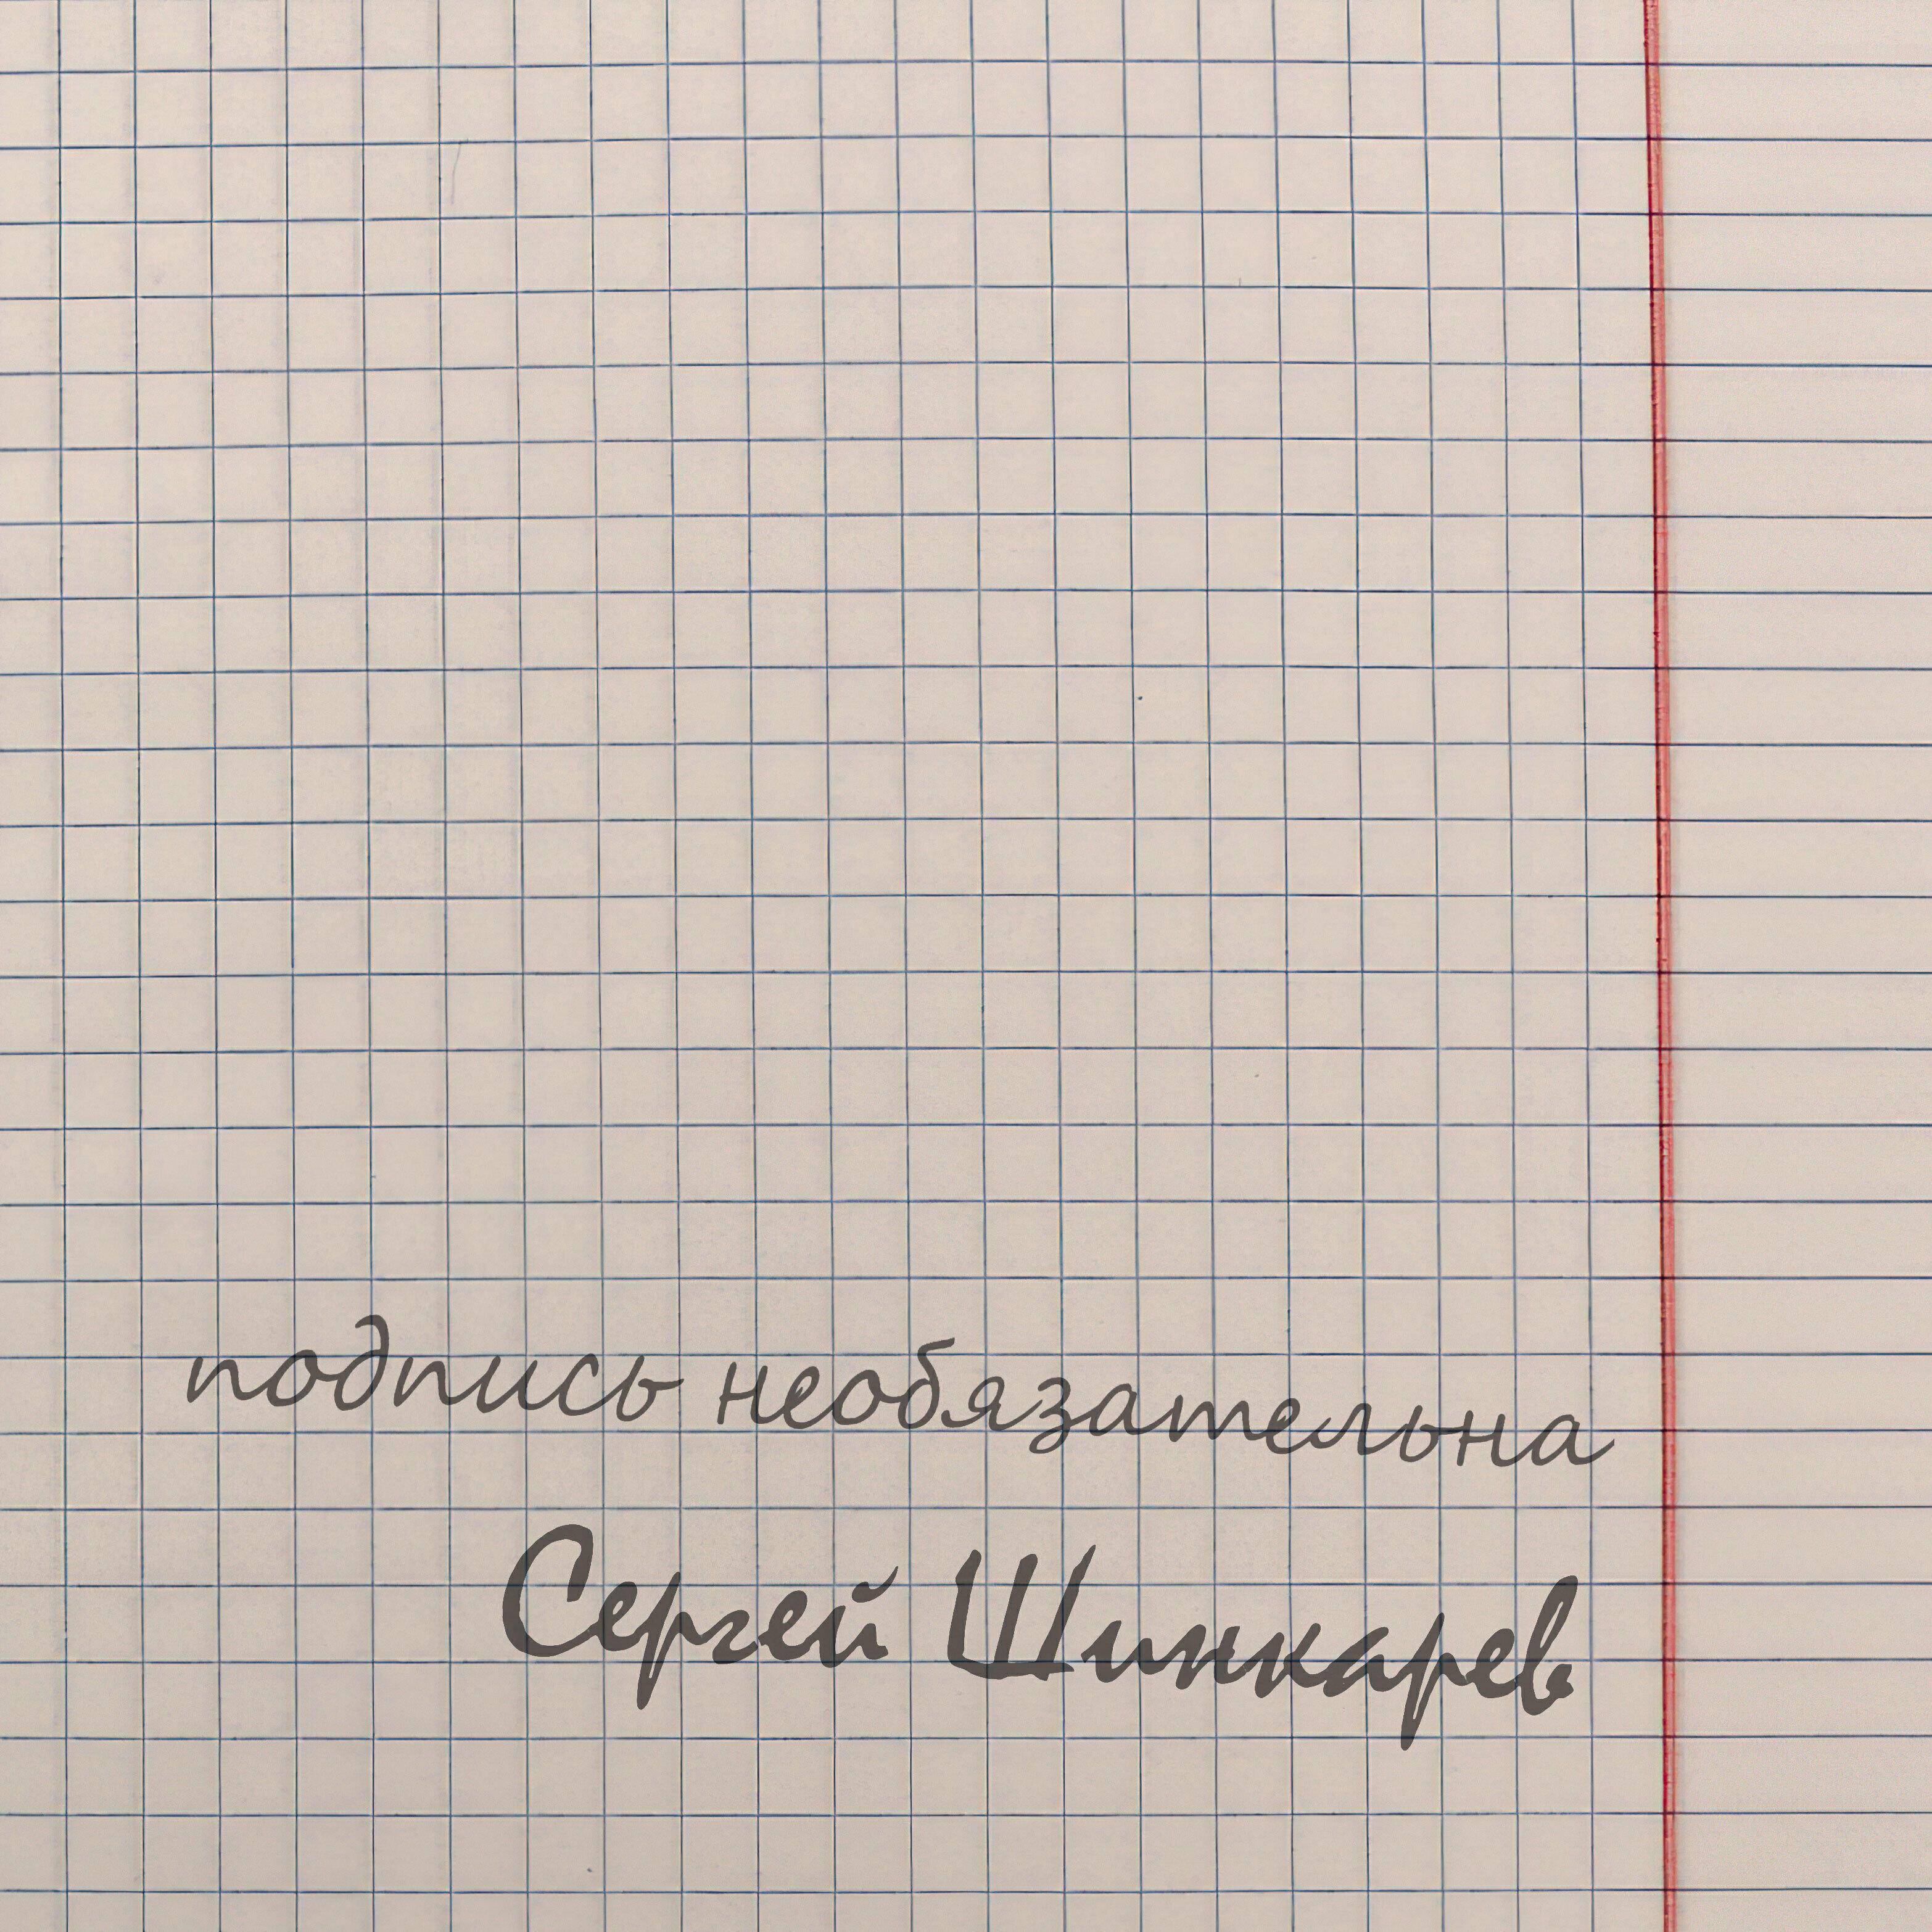 подпись необязательна
Сергей Шинкарев